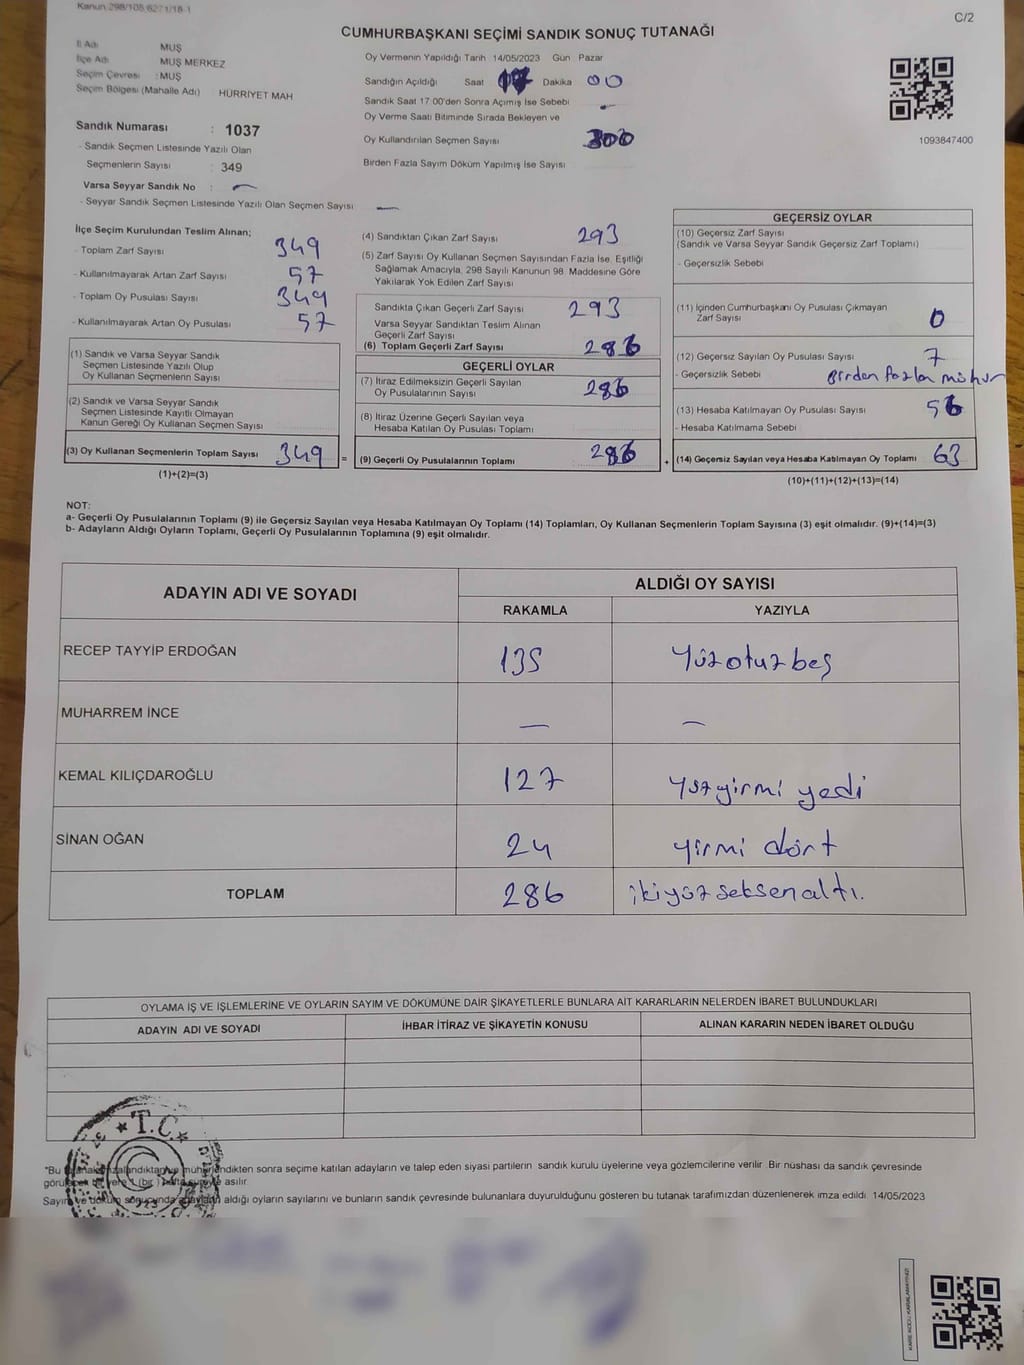 Kanun 298/105,6271/18-1
C/2
CUMHURBAŞKANI SEÇİMİ SANDIK SONUÇ TUTANAĞI
İl Adı MUŞ
İlçe Adı MUŞ MERKEZ
Seçim Çevresi : MUŞ
Seçim Bölgesi (Mahalle Adı) : HÜRRİYET MAH
Sandık Numarası : 1037
- Sandık Seçmen Listesinde Yazılı Olan
Seçmenlerin Sayısı : 349
Varsa Seyyar Sandık No : —
- Seyyar Sandık Seçmen Listesinde Yazılı Olan Seçmen Sayısı —
Oy Vermenin Yapıldığı Tarih 14/05/2023 Gün Pazar
Sandığın Açıldığı Saat 17 Dakika 00
Sandık Saat 17:00'den Sonra Açılmış İse Sebebi
Oy Verme Saati Bitiminde Sırada Bekleyen ve
Oy Kullandırılan Seçmen Sayısı
Birden Fazla Sayım Döküm Yapılmış İse Sayısı
1093847400
İlçe Seçim Kurulundan Teslim Alınan;
- Toplam Zarf Sayısı 349
- Kullanılmayarak Artan Zarf Sayısı 57
- Toplam Oy Pusulası Sayısı 349
- Kullanılmayarak Artan Oy Pusulası 57
(1) Sandık ve Varsa Seyyar Sandık
Seçmen Listesinde Yazılı Olup
Oy Kullanan Seçmenlerin Sayısı
(2) Sandık ve Varsa Seyyar Sandık
Seçmen Listesinde Kayıtlı Olmayan
Kanun Gereği Oy Kullanan Seçmen Sayısı
(3) Oy Kullanan Seçmenlerin Toplam Sayısı 349 =
(1)+(2)=(3)
(4) Sandıktan Çıkan Zarf Sayısı 293
(5) Zarf Sayısı Oy Kullanan Seçmen Sayısından Fazla İse, Eşitliği
Sağlamak Amacıyla, 298 Sayılı Kanunun 98. Maddesine Göre
Yakılarak Yok Edilen Zarf Sayısı
Sandıkta Çıkan Geçerli Zarf Sayısı 293
Varsa Seyyar Sandıktan Teslim Alınan
Geçerli Zarf Sayısı
(6) Toplam Geçerli Zarf Sayısı 286
GEÇERLİ OYLAR
(7) İtiraz Edilmeksizin Geçerli Sayılan
Oy Pusulasının Sayısı 286
(8) İtiraz Üzerine Geçerli Sayılan veya
Hesaba Katılan Oy Pusulası Toplamı
(9) Geçerli Oy Pusulalarının Toplamı 286 +
GEÇERSİZ OYLAR
(10) Geçersiz Zarf Sayısı
(Sandık ve Varsa Seyyar Sandık Geçersiz Zarf Toplamı)
- Geçersizlik Sebebi
(11) İçinden Cumhurbaşkanı Oy Pusulası Çıkmayan
Zarf Sayısı 0
(12) Geçersiz Sayılan Oy Pusulası Sayısı 7
- Geçersizlik Sebebi Birden fazla mühür
(13) Hesaba Katılmayan Oy Pusulası Sayısı 56
- Hesaba Katılmama Sebebi
(14) Geçersiz Sayılan veya Hesaba Katılmayan Oy Toplamı 63
(10)+(11)+(12)+(13)=(14)
NOT:
a- Geçerli Oy Pusulalarının Toplamı (9) ile Geçersiz Sayılan veya Hesaba Katılmayan Oy Toplamı (14) Toplamları, Oy Kullanan Seçmenlerin Toplam Sayısına (3) eşit olmalıdır. (9)+(14)=(3)
b- Adayların Aldığı Oyların Toplamı, Geçerli Oy Pusulalarının Toplamına (9) eşit olmalıdır.
ADAYIN ADI VE SOYADI ALDIĞI OY SAYISI
RAKAMLA YAZIYLA
RECEP TAYYİP ERDOĞAN 135 Yüzotuzbeş
MUHARREM İNCE — —
KEMAL KILIÇDAROĞLU 127 Yüzyirmi yedi
SİNAN OĞAN 24 yirmi dört
TOPLAM 286 ikiyüzseksenaltı.
OYLAMA İŞ VE İŞLEMLERİNE VE OYLARIN SAYIM VE DÖKÜMÜNE DAİR ŞİKAYETLERLE BUNLARA AİT KARARLARIN NELERDEN İBARET BULUNDUKLARI
ADAYIN ADI VE SOYADI İHBAR İTİRAZ VE ŞİKAYETİN KONUSU ALINAN KARARIN NEDEN İBARET OLDUĞU
T.C.
*Bu mühürlendikten sonra seçime katılan adayların ve talep eden siyasi partilerin sandık kurulu üyelerine veya gözlemcilerine verilir. Bir nüshası da sandık çevresinde
asılır.
aldığı oyların sayılarını ve bunların sandık çevresinde bulunanlara duyurulduğunu gösteren bu tutanak tarafımızdan düzenlenerek imza edildi. 14/05/2023
KARE KODU KARALAMAYINIZ!